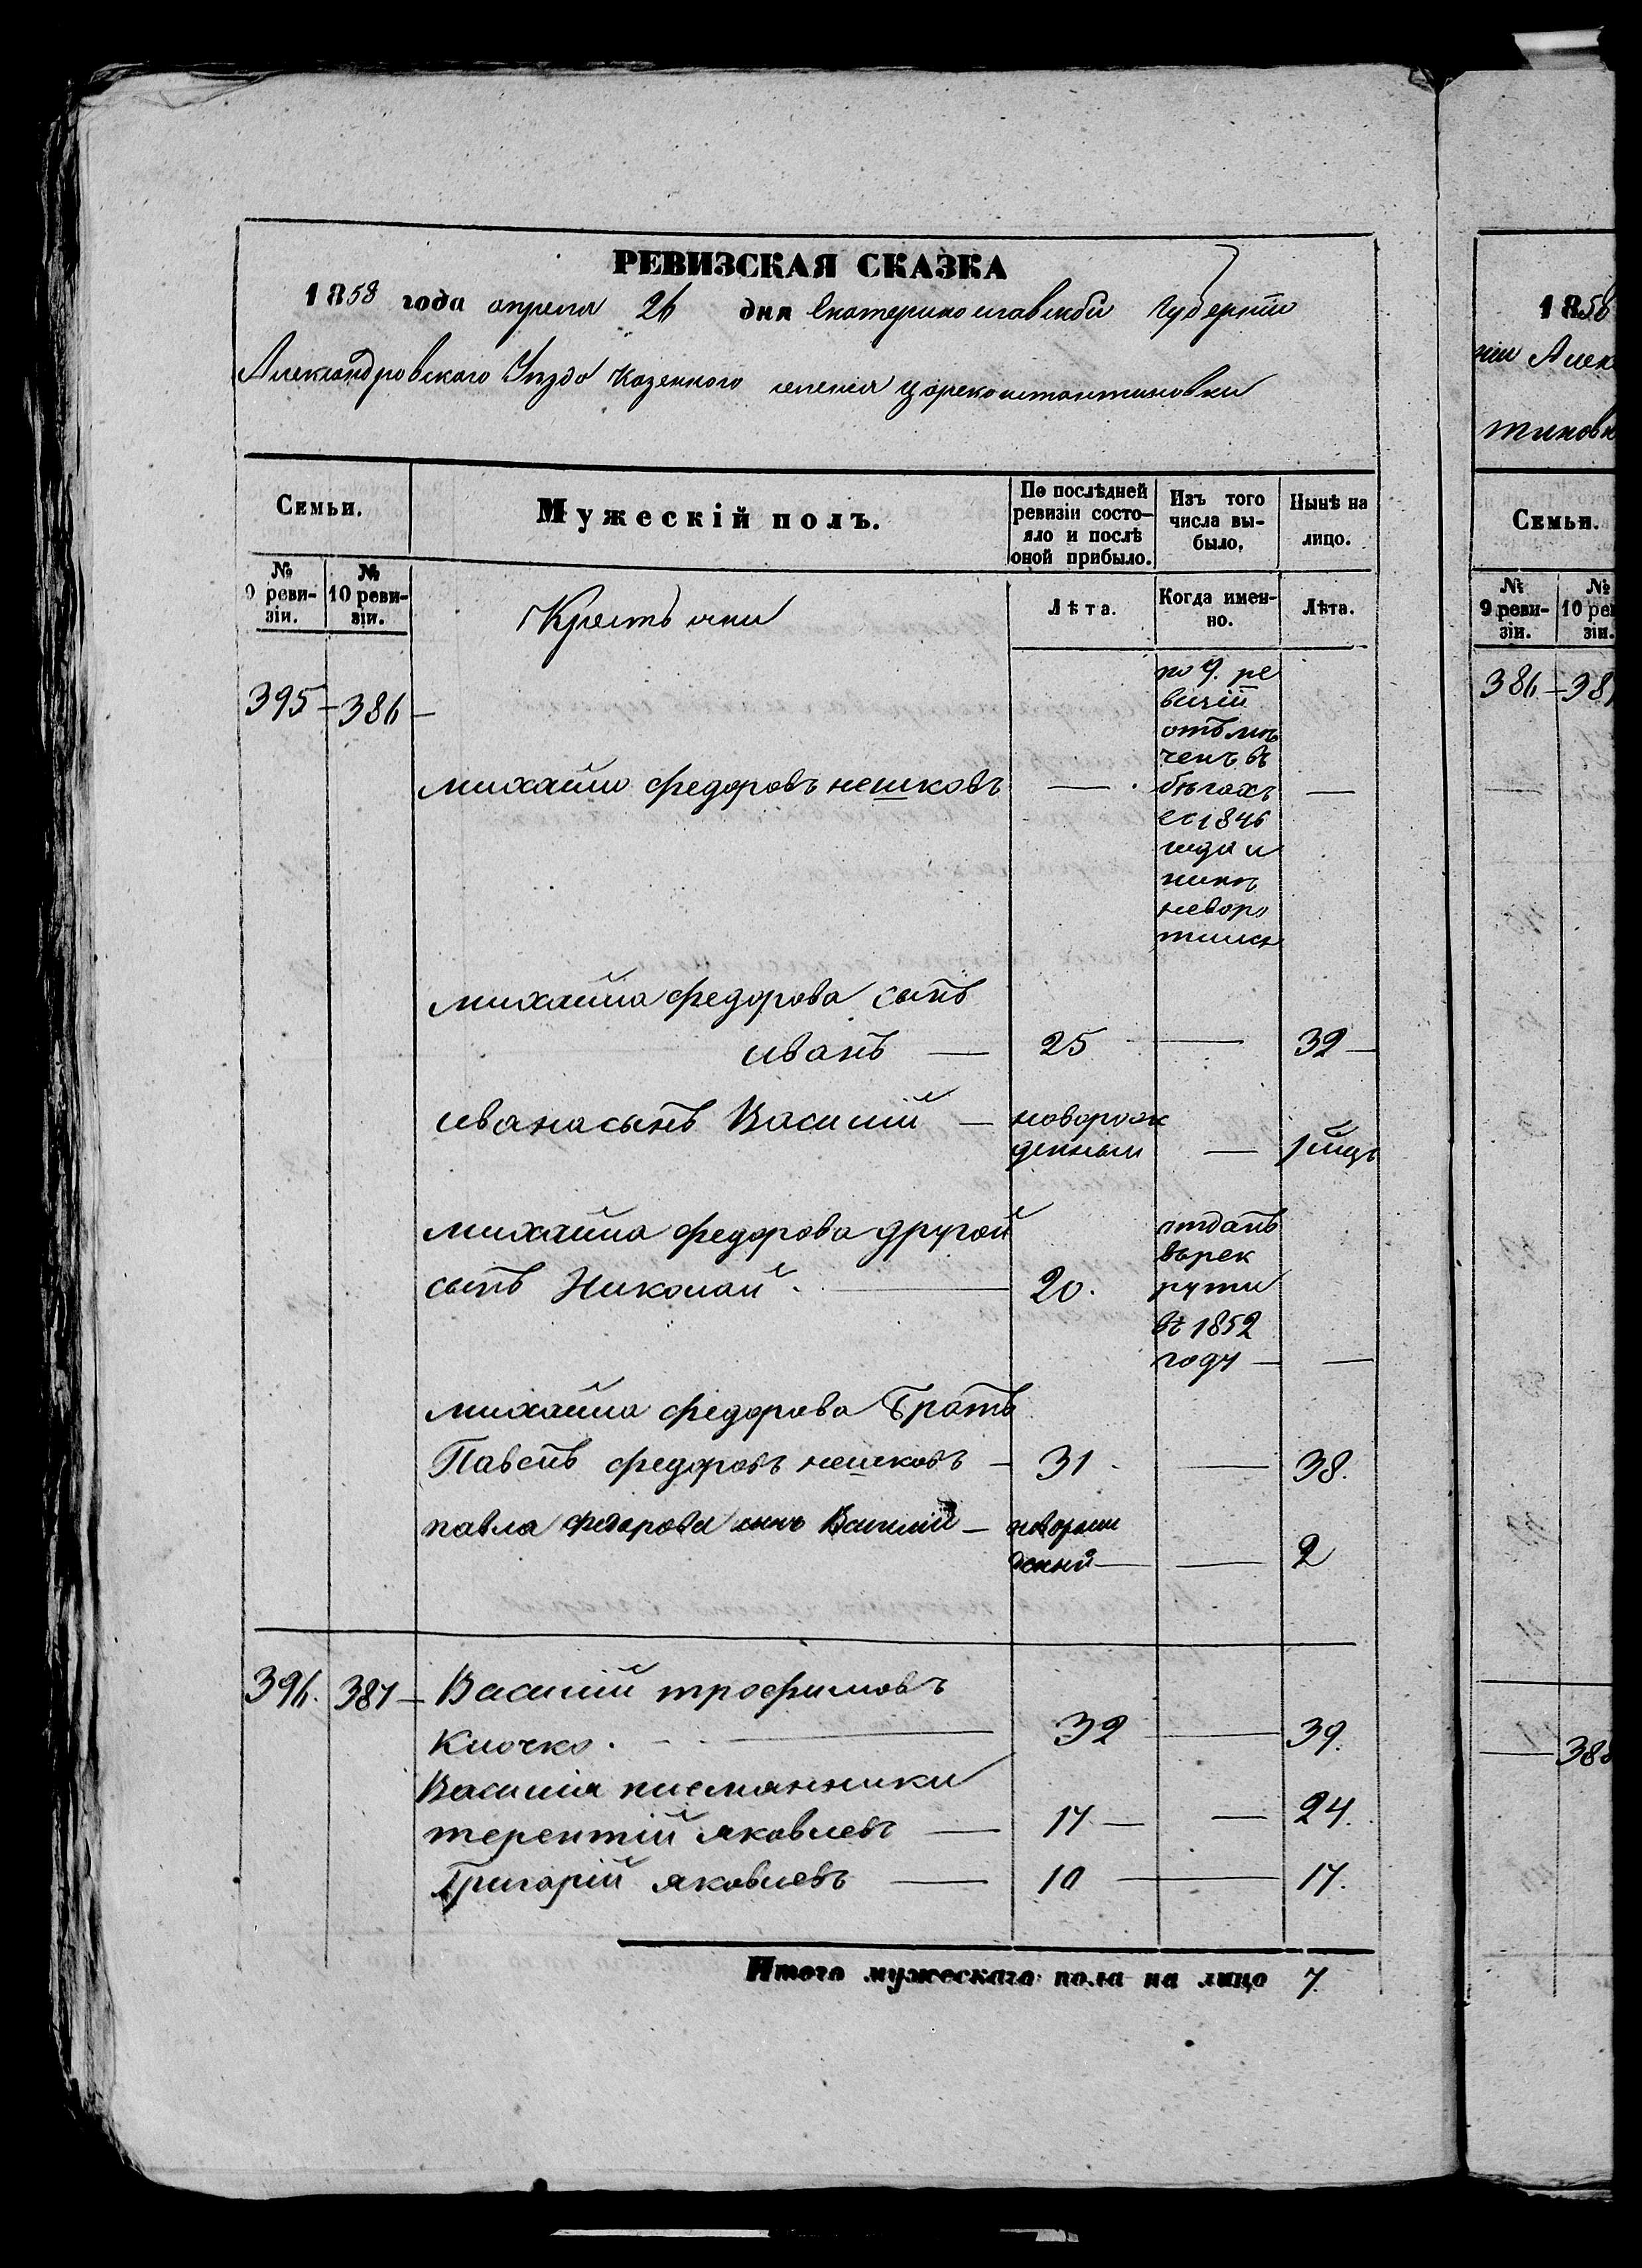 РЕВИЗСКАЯ СКАЗКА
1858 года апреля 26 дня Екатеринославской Губернiи
Александровского Уѣзда Казенного селенiя Цареконстантиновки
Семьи.
Мужескiй полъ.
По послѣдней ревизiи состо-
яло и послѣ
оной прибыло.
Изъ того
числа вы-
было.
Нынѣ на
лицо.
№
9 реви-
зiи.
№
10 реви-
зiи.
Крестьяни
Лѣта.
Когда имен-
но.
Лѣта.
395 – 386 –
михайло федоровъ нешковъ — —
по 9. ре
визiи
отъмѣ
ченъ въ
бѣгахъ
съ 1846
года и
нынѣ
неворо
тился
михайла федорова сынъ
иванъ — 25 — 32 —
ивана сынъ Василiй — новорож
денный — 1 мцъ
михайла федорова другой
сынъ Николай. — 20.
отданъ
въ рек
руты
въ 1852
году — —
михайла федорова братъ
Павелъ федоровъ нешковъ – 31 — 38.
павла федорова сынъ Василiй – новорож
денный — — 2
396. 387 – Василiй трофимовъ
Клочко. — 32 — 39.
Василiя племянники
терентiй яковлевъ — 17 — — 24.
Григорiй яковлевъ — 10 — 17.
Итого мужескаго пола на лицо 7
1858
нiи Алек
тиновк
Семьи.
№
9 реви-
зiи.
№
10 рев
зiи.
386 – 38
— 388